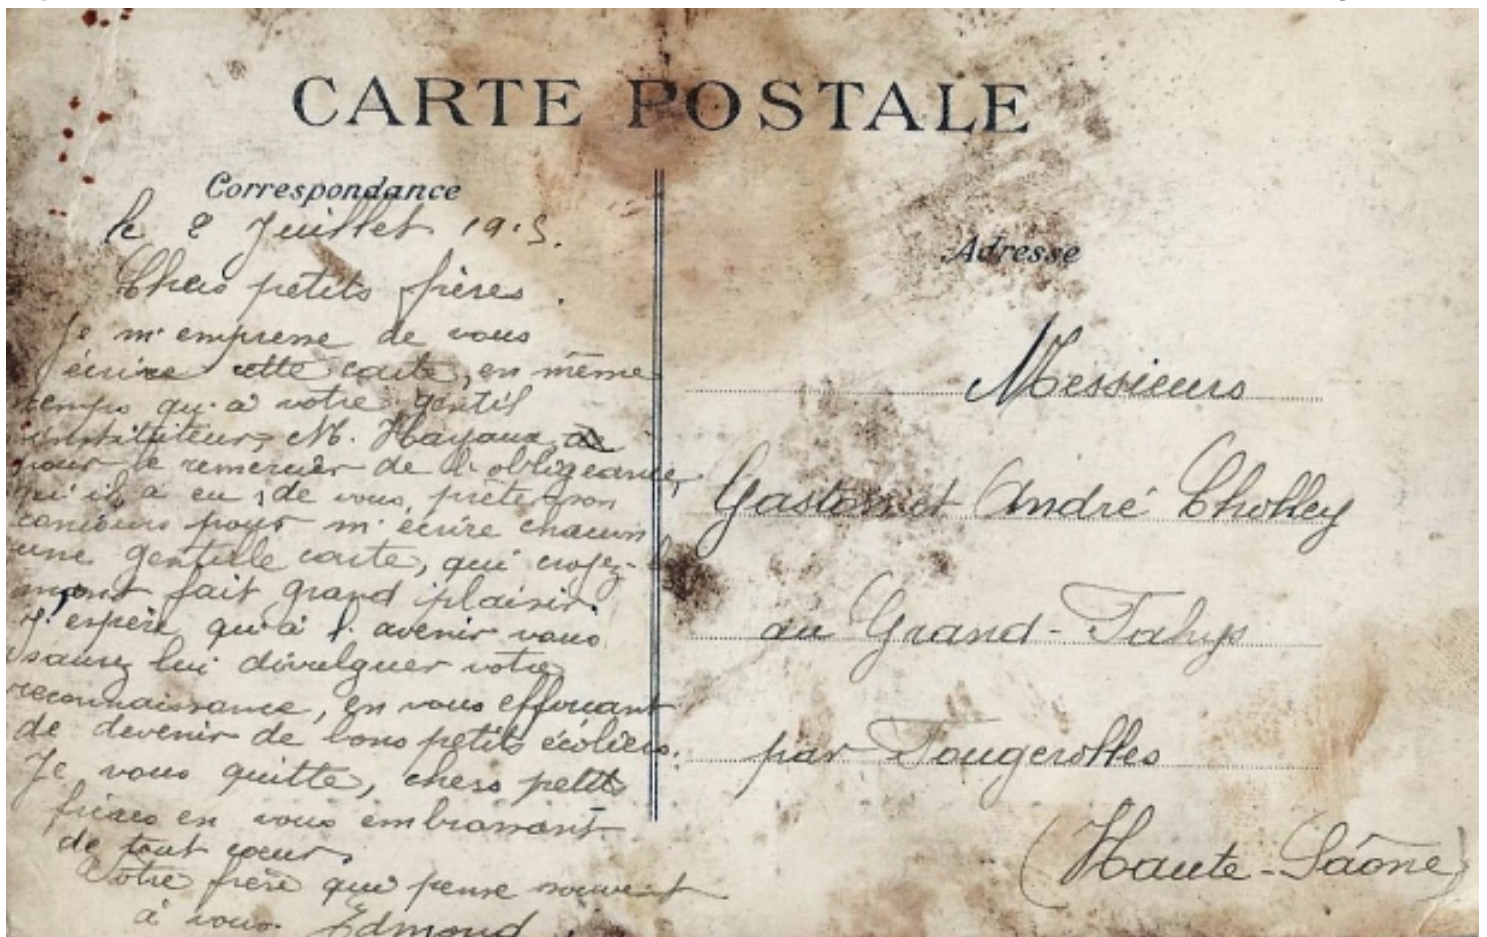 CARTE POSTALE
Correspondance
le 8 Juillet 19.5.
Chers petits frères.
Je m'empresse de vous
écrire cette carte, en même
temps qu'à votre gentil
instituteur, M. Hayaux
pour le remercier de l'obligeance,
qu'il a eu, de vous, prêter son
concours pour m'écrire chacun
une gentille carte, qui croyez-
m'ont fait grand plaisir.
J'espère qu'à l'avenir vous
saurez lui divulguer votre
reconnaissance, en vous efforcant
de devenir de bons petits écoliers.
Je vous quitte, chers petits
frères en vous embrassant
de tout coeur.
Votre frère qui pense souvent
à vous. Edmond.
Adresse
Messieurs
Gaston et André Cholley
au Grand-Fahys
par Fougerolles
(Haute-Saône)